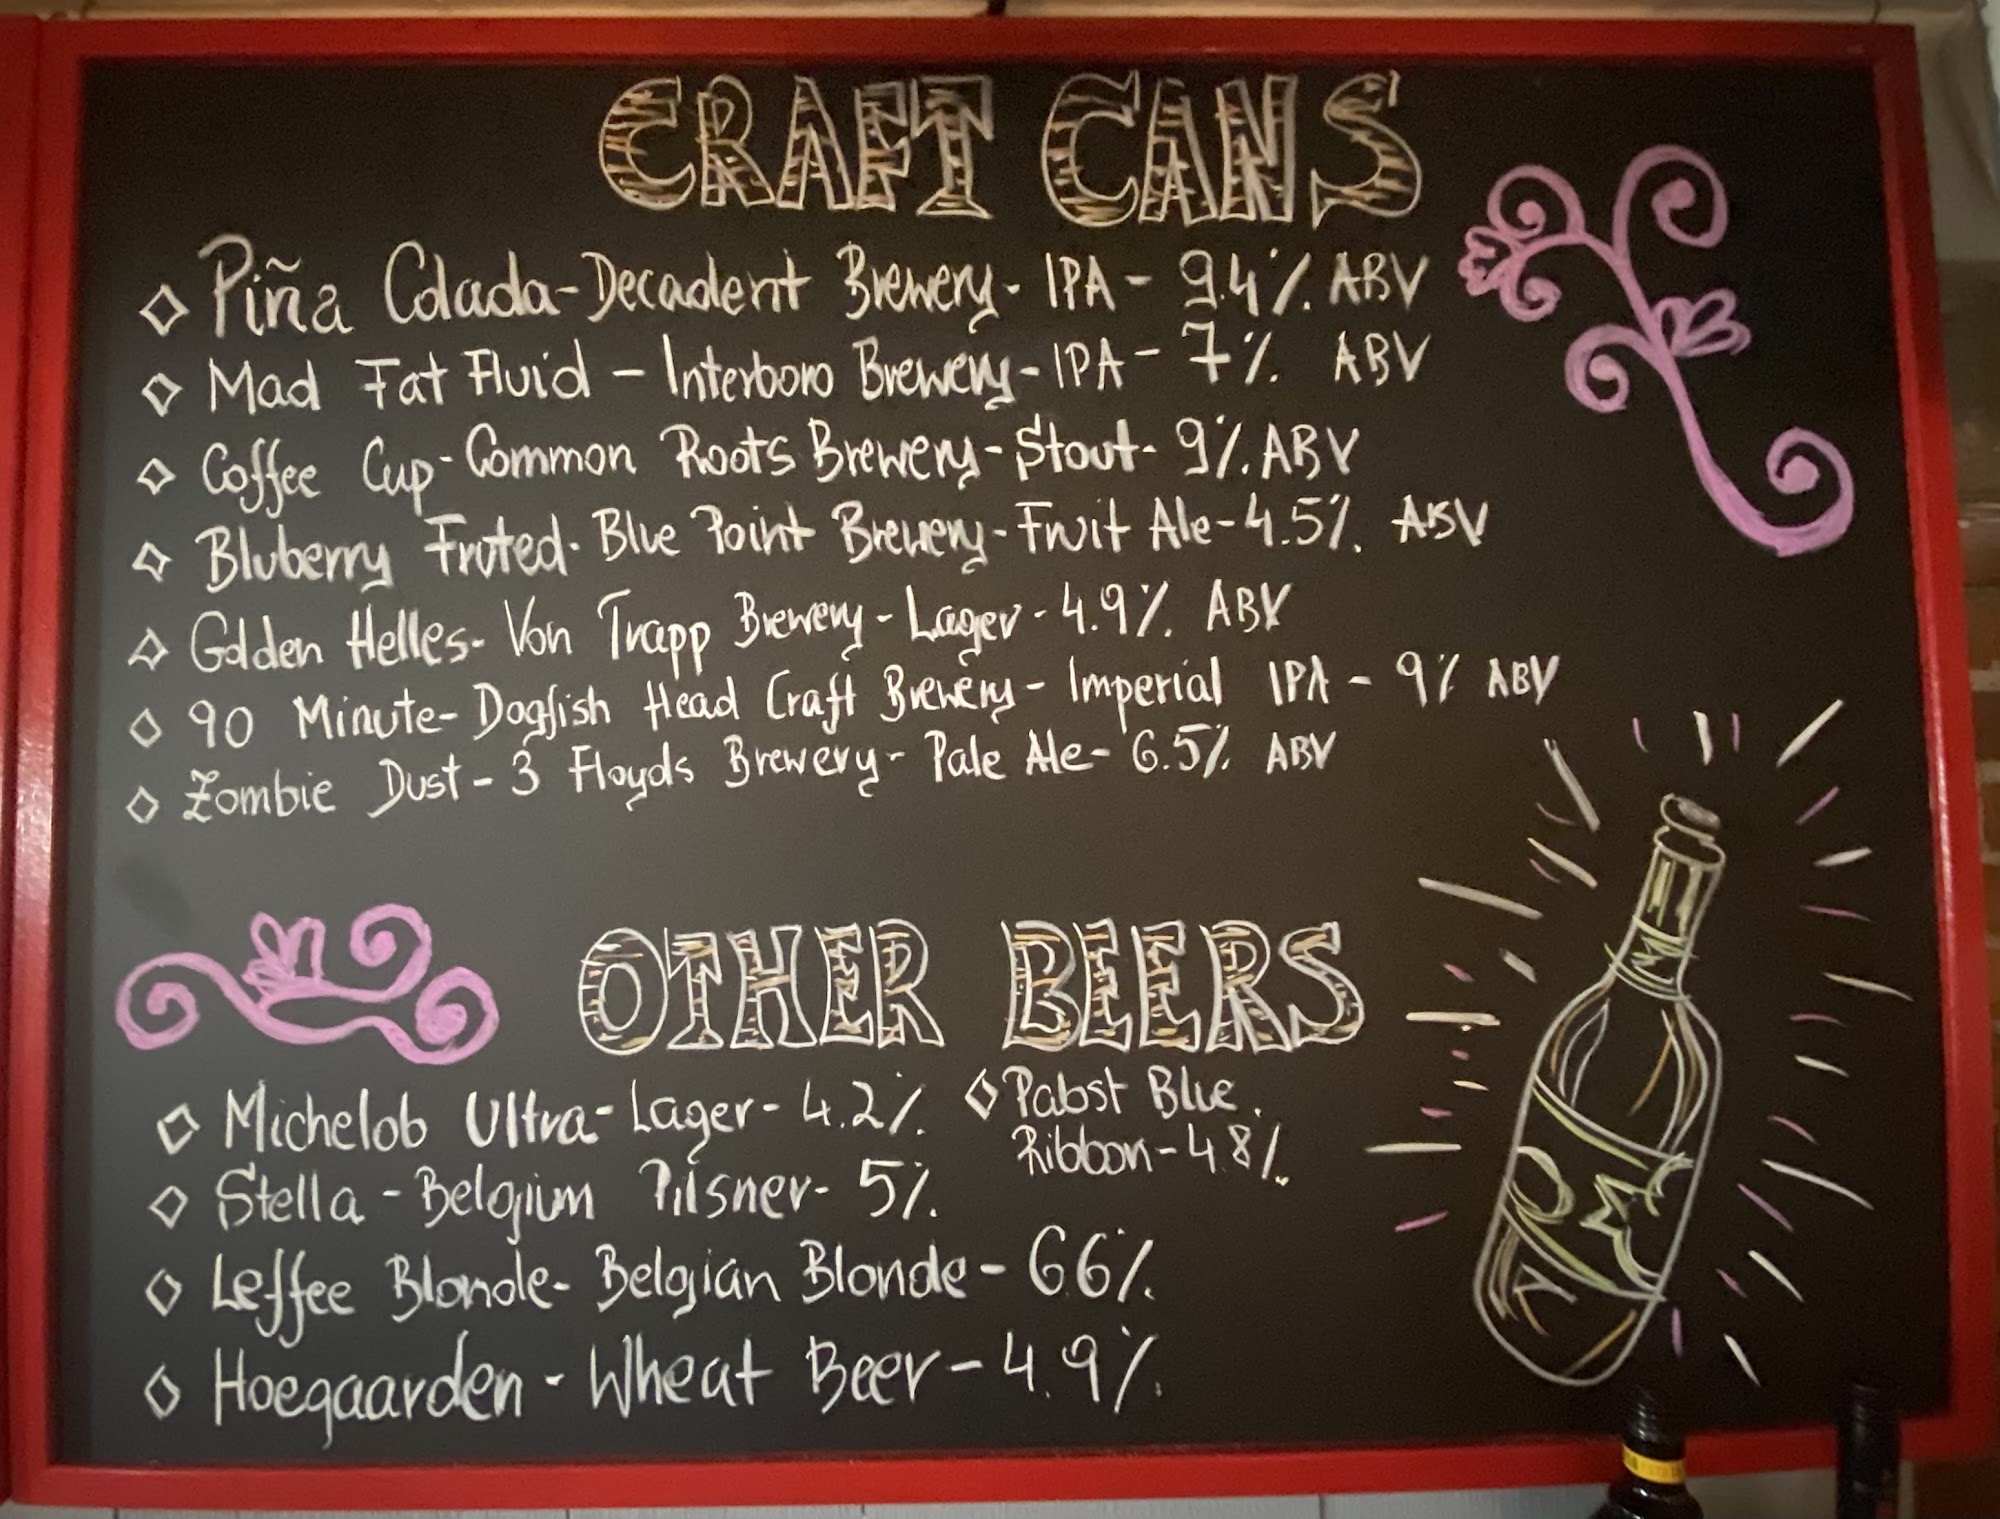 CRAFT CANS
◇ Piña Colada-Decadent Brewery- IPA - 9.4% ABV
◇ Mad Fat Fluid - Interboro Brewery-IPA- 7% ABV
◇ Coffee Cup-Common Roots Brewery-Stout- 9% ABV
◇ Bluberry Fruted- Blue Point Brewery-Fruit Ale-4.5% ABV
◇ Golden Helles- Von Trapp Brewery-Lager-4.9% ABV
◇ 90 Minute-Dogfish Head Craft Brewery- Imperial IPA - 9% ABV
◇ Zombie Dust-3 Floyds Brewery- Pale Ale- 6.5% ABV
OTHER BEERS
◇ Michelob Ultra-Lager- 4.2%
◇ Stella-Belgium Pilsner- 5%
◇ Leffee Blonde- Belgian Blonde- 6.6%
◇ Hoegaarden - Wheat Beer-4.9%
◇ Pabst Blue
Ribbon-4.8%